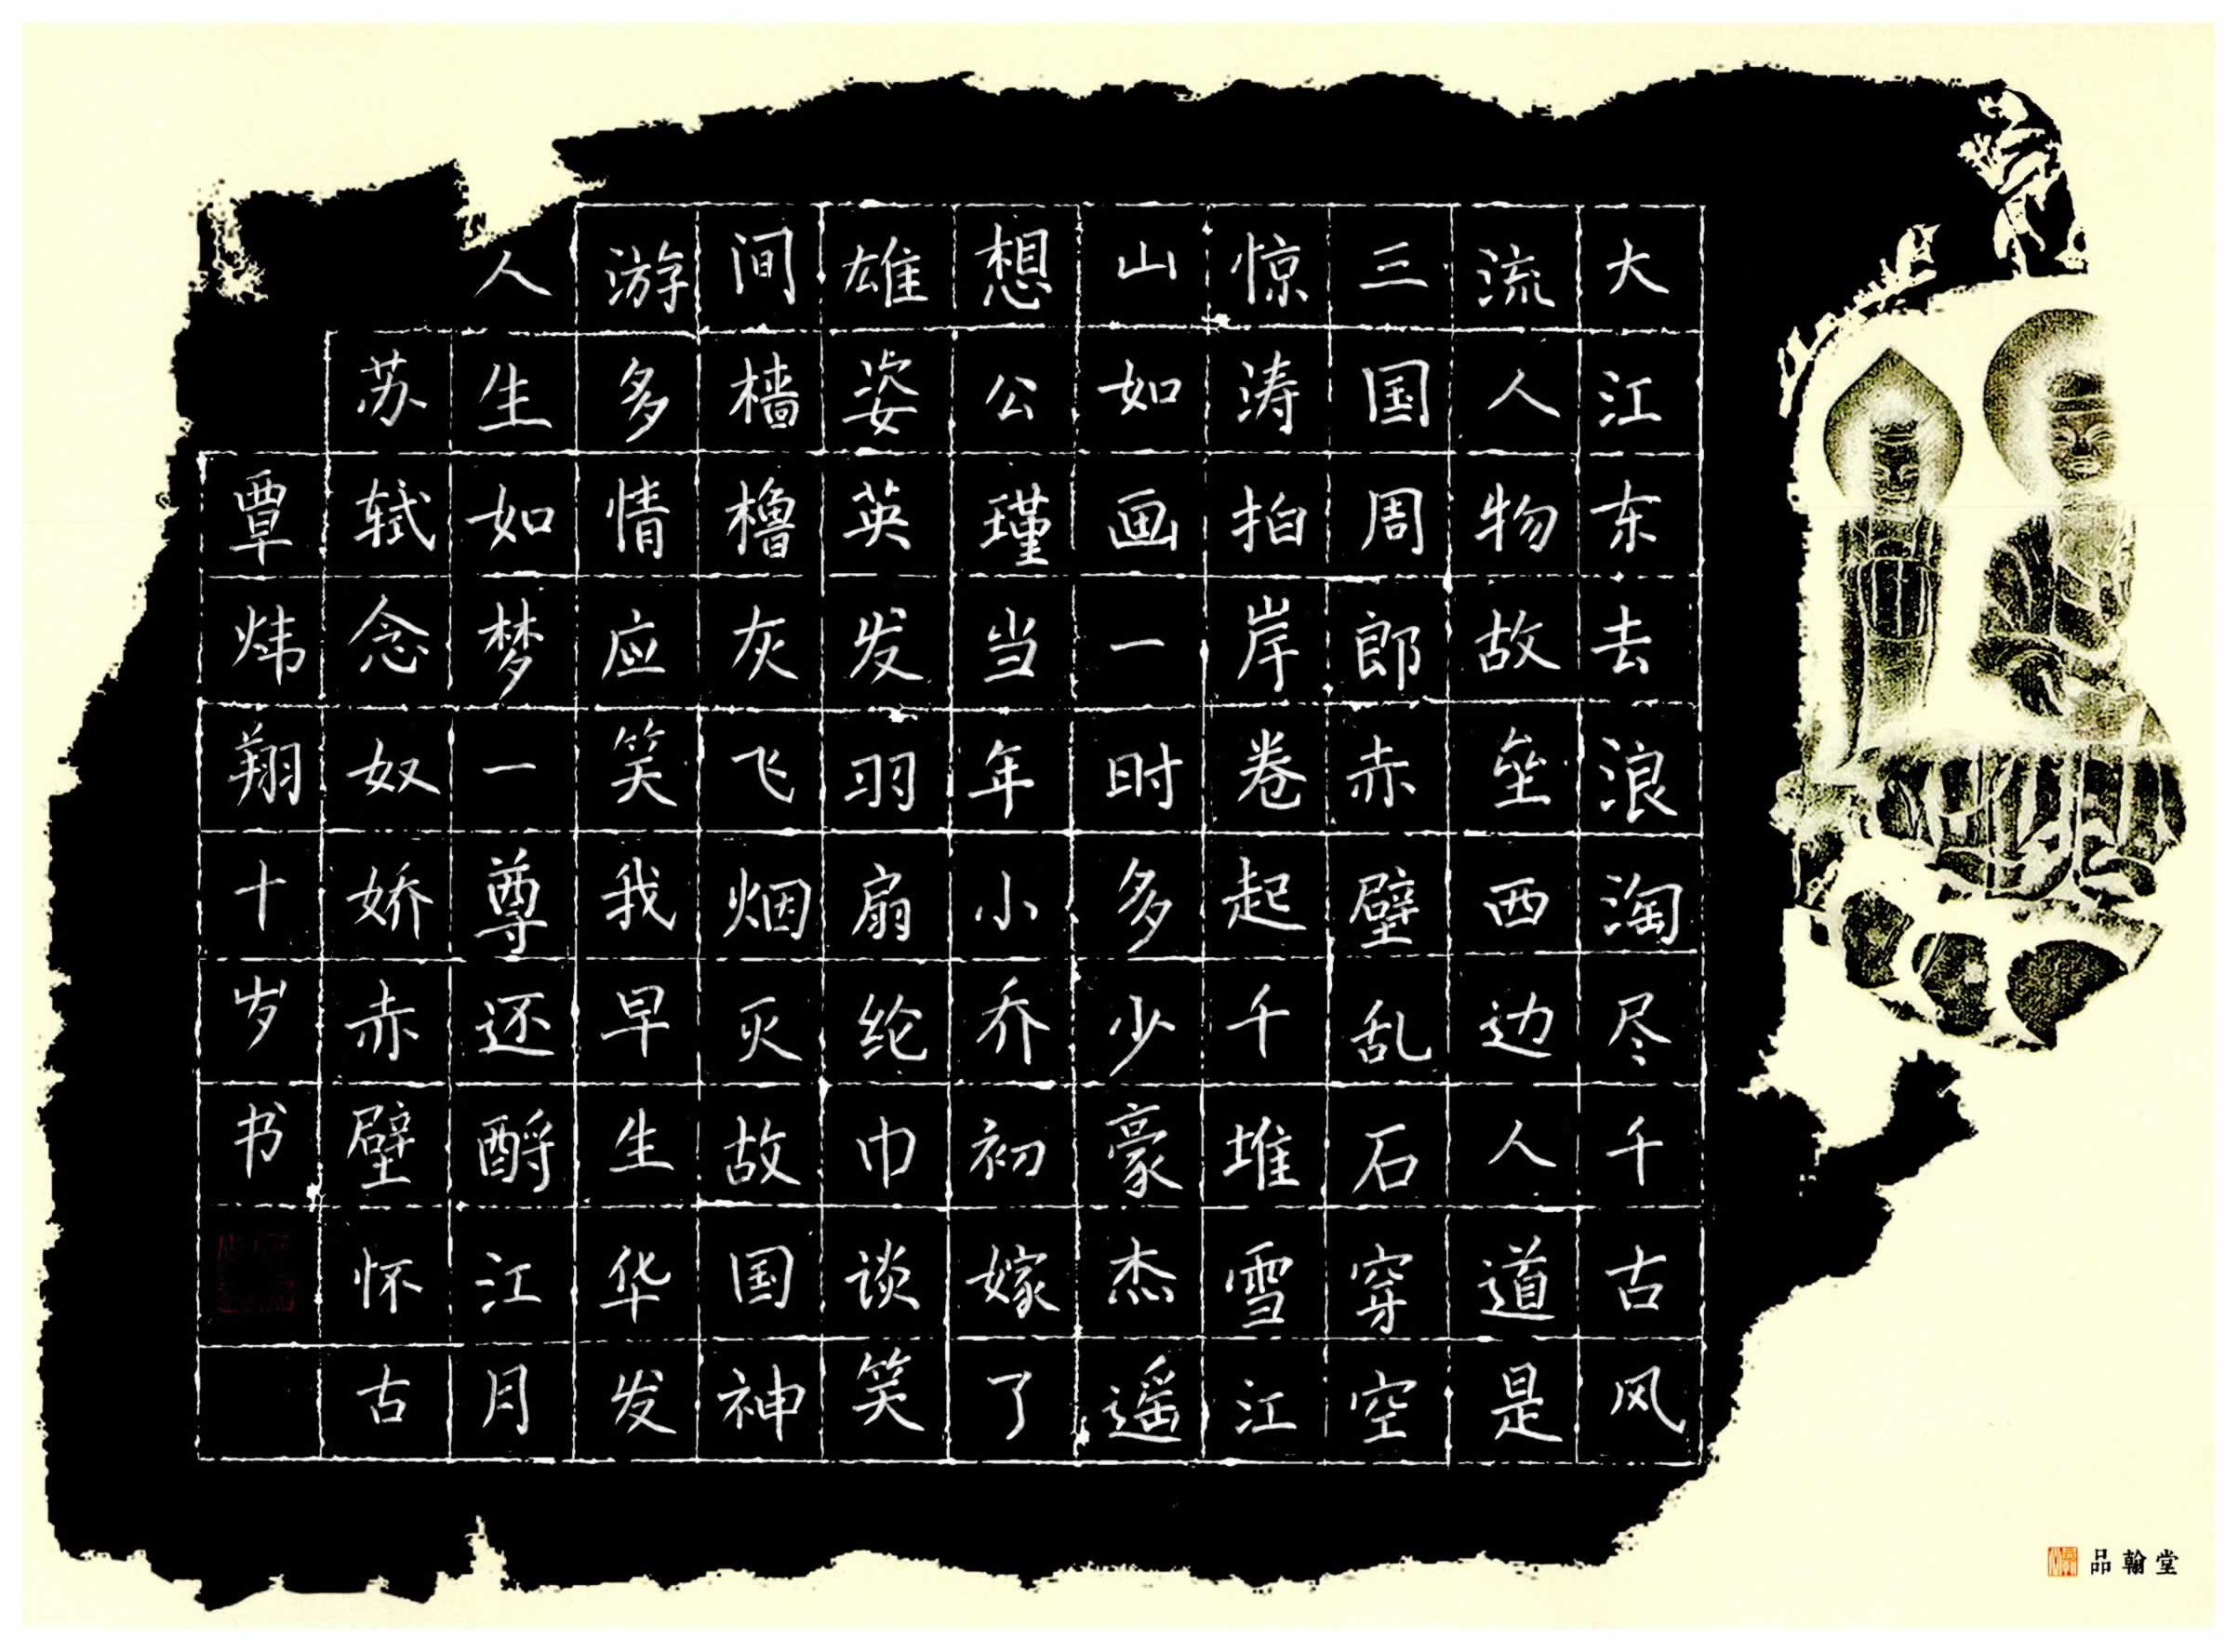 大江东去浪淘尽千古风
流人物故垒西边人道是
三国周郎赤壁乱石穿空
惊涛拍岸卷起千堆雪江
山如画一时多少豪杰遥
想公瑾当年小乔初嫁了
雄姿英发羽扇纶巾谈笑
间樯橹灰飞烟灭故国神
游多情应笑我早生华发
人生如梦一尊还酹江月
苏轼念奴娇赤壁怀古
覃炜翔十岁书
品翰堂